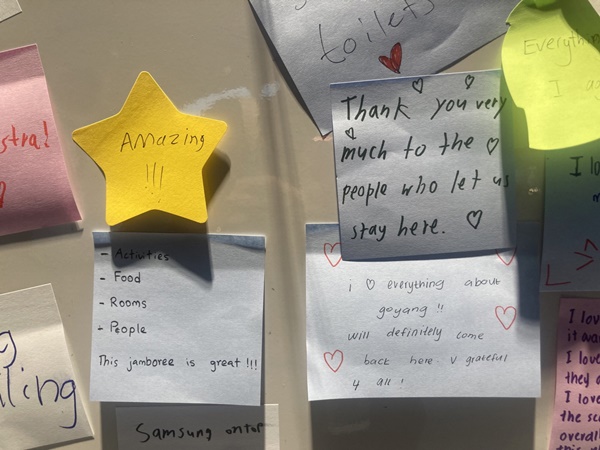 toilets
Everything
I
stra!
AMazing
!!!
Thank you very
much to the
people who let us
stay here.
- Activities
- Food
- Rooms
- People
This jamboree is great!!!
i ♡ everything about
goyang !!
will definitely come
back here. v grateful
4 all !
I lo
ling
Samsung ontop
I love
it wa
I love
they a
I love
the sc
overall